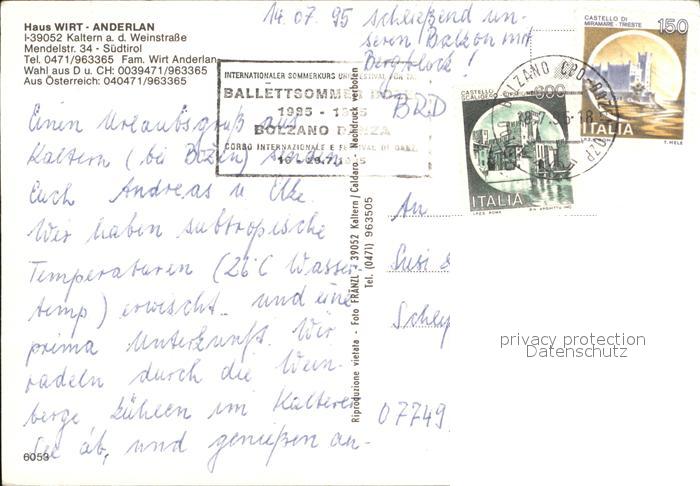 Haus WIRT - ANDERLAN
I-39052 Kaltern a. d. Weinstraße
Mendelstr. 34 - Südtirol
Tel. 0471/963365 Fam. Wirt Anderlan
Wahl aus D u. CH: 0039471/963365
Aus Österreich: 040471/963365
14.07.95 schließend un-
seren Balkon mit
Bergblick!
CASTELLO DI
MIRAMARE - TRIESTE
150
ITALIA
I.P.Z.S. ROMA
T. MELE
CASTELLO
SCALIGERO
600
ITALIA
I.P.Z.S. ROMA
BOLZANO
INTERNATIONALER SOMMERKURS
BALLETTSOMMER BOZEN
1985 - 1995
BOLZANO DANZA
CORSO INTERNAZIONALE E FESTIVAL DI DANZA
BRD
Einen Urlaubsgruß aus
Kaltern (bei Bozen) senden
Euch Andreas u. Elke.
Wir haben subtropische
Temperaturen (26°C Wasser-
temp) erwischt.. und eine
prima Unterkunft. Wir
radeln durch die Wein-
berge kühlen im Kalterer
See ab, und genießen an-
6053
Riproduzione vietata - Foto FRÄNZL - 39052 Kaltern / Caldaro - Nachdruck verboten
Tel. (0471) 963505
An
Susi &
07749
privacy protection
Datenschutz